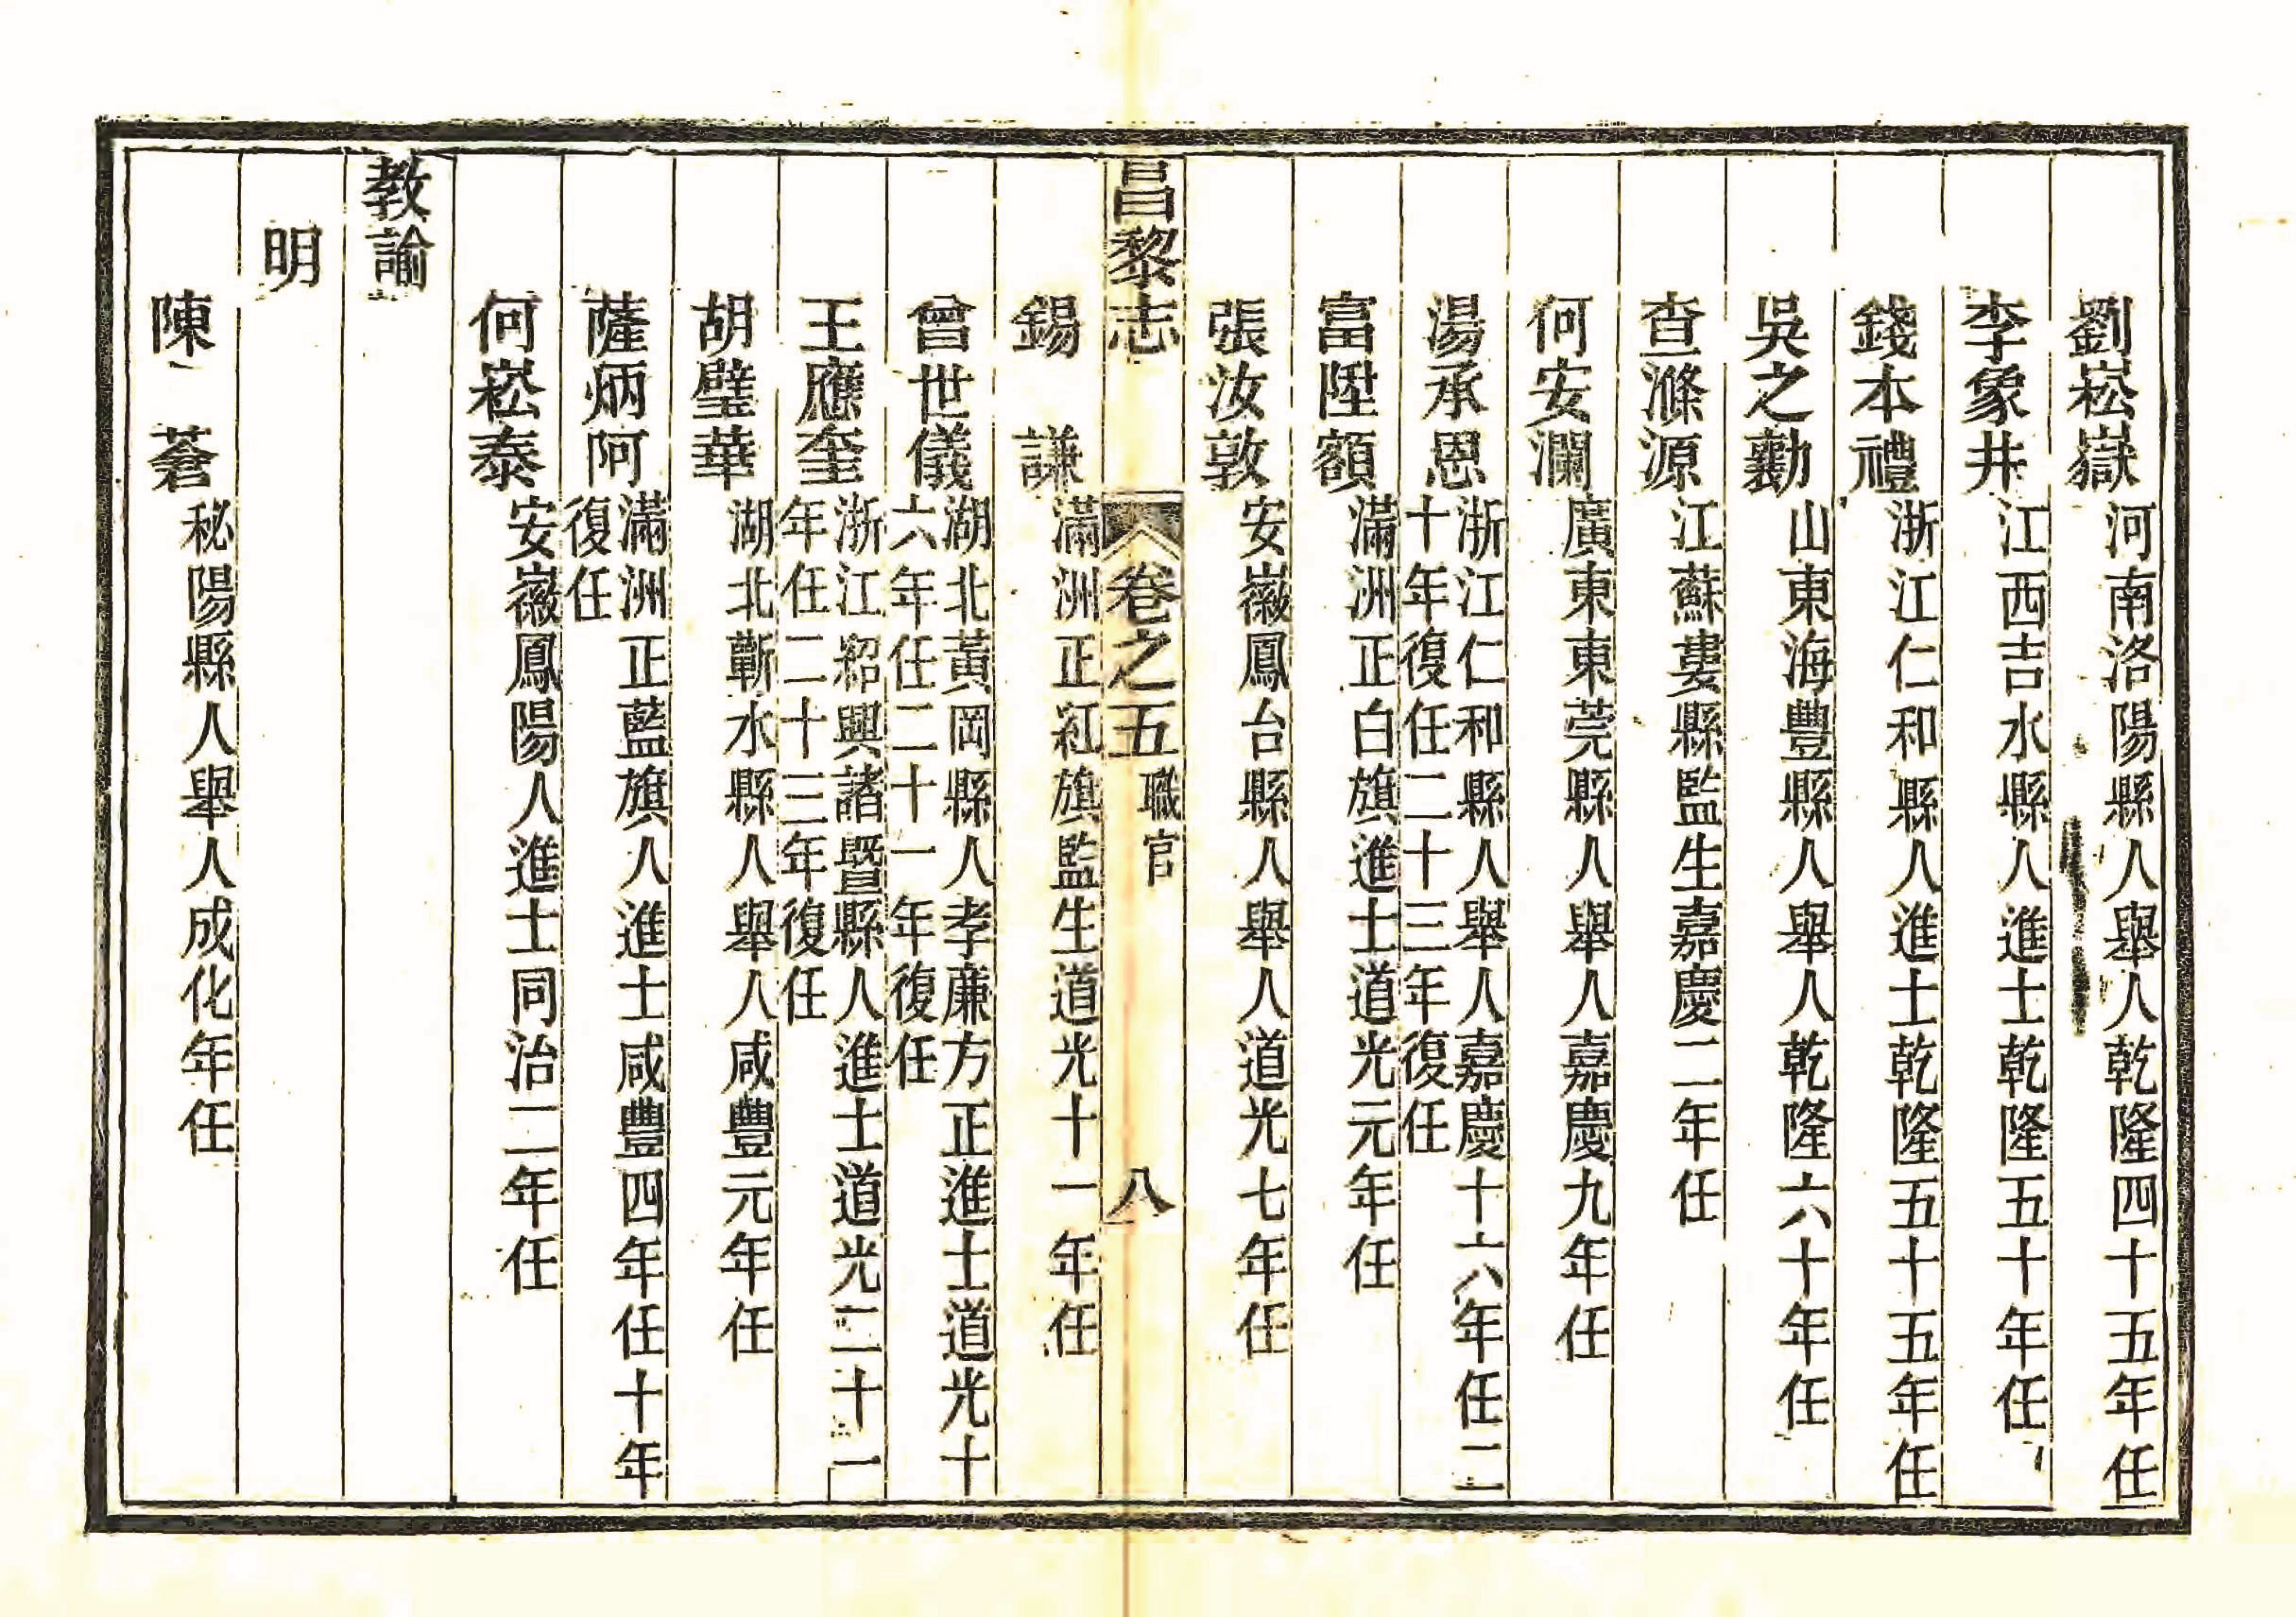 劉崧嶽河南洛陽縣人舉人乾隆四十五年任
李象井江西吉水縣人進士乾隆五十年任
錢本禮浙江仁和縣人進士乾隆五十五年任
吳之勷山東海豐縣人舉人乾隆六十年任
查滌源江蘇婁縣監生嘉慶二年任
何安瀾廣東東莞縣人舉人嘉慶九年任
湯承恩浙江仁和縣人舉人嘉慶十六年任二
十年復任二十三年復任
富陞額滿洲正白旗進士道光元年任
張汝敦安徽鳳台縣人舉人道光七年任
昌黎志 卷之五 職官 八
錫謙滿洲正紅旗監生道光十一年任
曾世儀湖北黃岡縣人孝廉方正進士道光十
六年任二十一年復任
王應奎浙江紹興諸暨縣人進士道光二十一
年任二十三年復任
胡璧華湖北蘄水縣人舉人咸豐元年任
薩炳阿滿洲正藍旗人進士咸豐四年任十年
復任
何崧泰安徽鳳陽人進士同治二年任
教諭
明
陳蒼秘陽縣人舉人成化年任